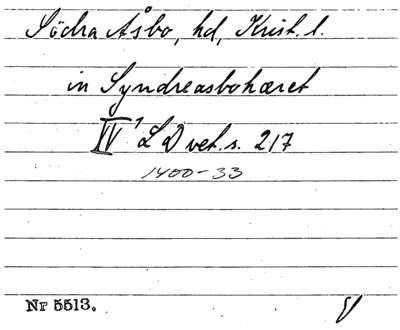 Södra Åsbo, hd, Krist. l.
in Syndreasbohæret
IV¹ LD vet. s. 217
1400-33
Nr 5513.